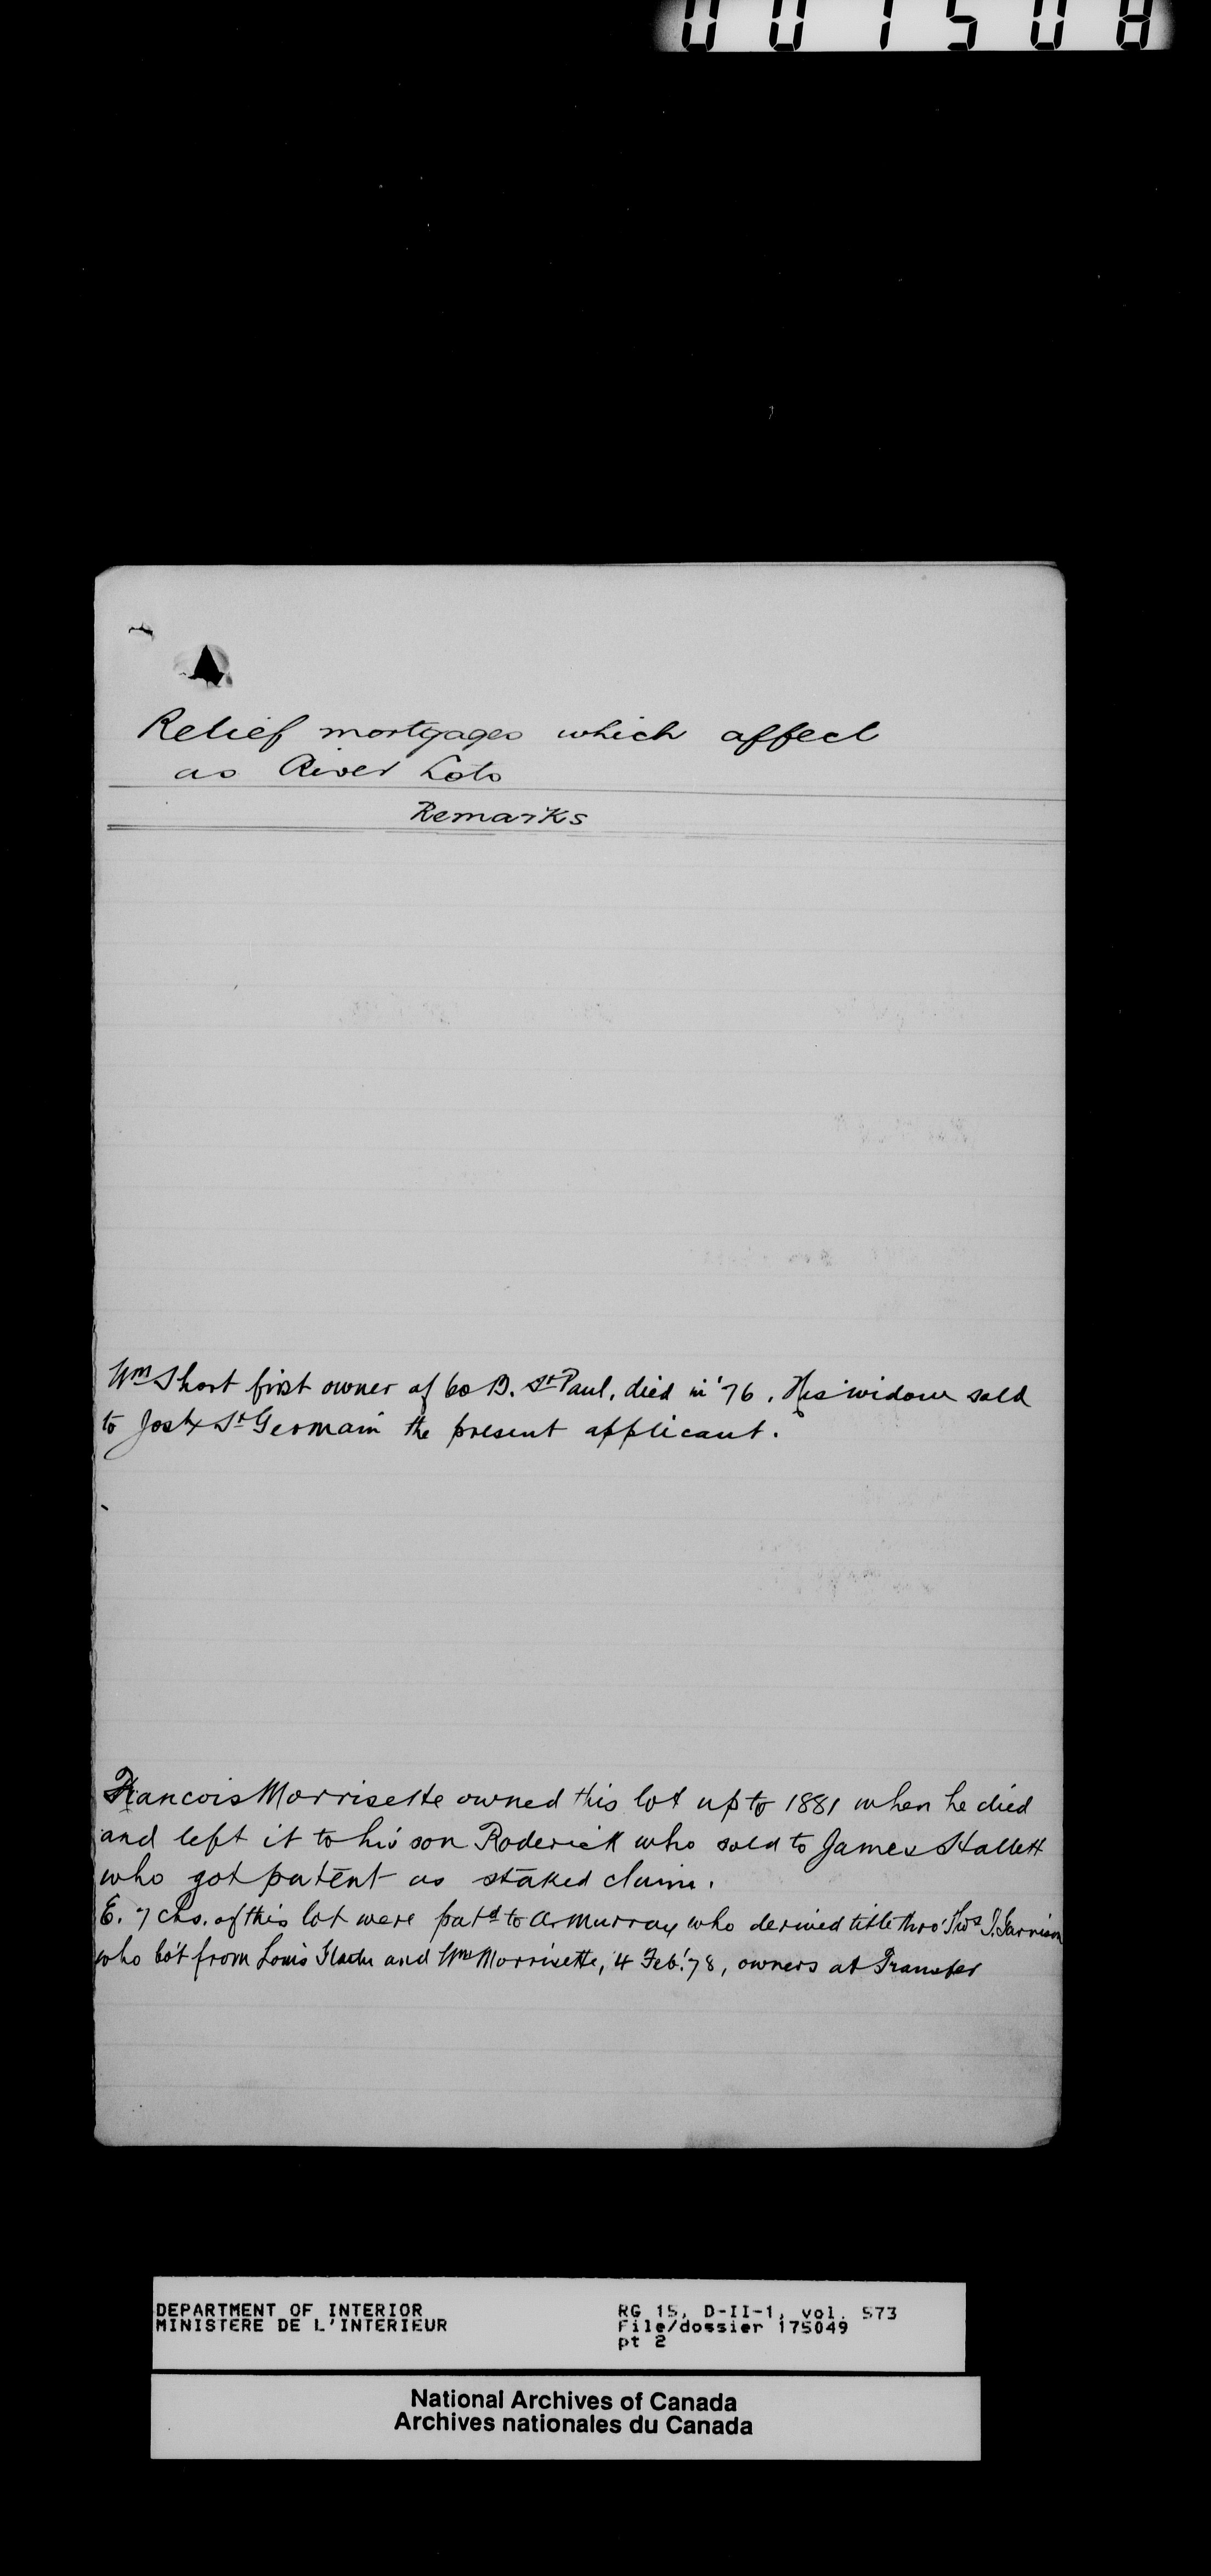 001508
Relief mortgages which affect
as River Lots
Remarks
Wm Short first owner of 60 B. St Paul, died in '76. His widow sold
to Josh St Germain the present applicant.
Francois Morrisette owned this lot up to 1881 when he died
and left it to his son Roderick who sold to James Hallett
who got patent as staked claim.
E. 7 chs. of this lot were patd to A. Murray who derived title thro' Thos J.
who bo't from Louis and Wm Morrisette, 4 Feb! 78, owners at Transfer
DEPARTMENT OF INTERIOR RG 15, D-II-1, vol. 573
MINISTERE DE L'INTERIEUR File/dossier 175049
pt 2
National Archives of Canada
Archives nationales du Canada